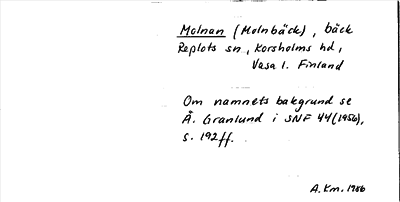 Molnan (Molnbäck), bäck
Replots sn, Korsholms hd,
Vasa l. Finland
Om namnets bakgrund se
Å. Granlund i SNF 44 (1956),
s. 192 ff.
A. Km. 1986